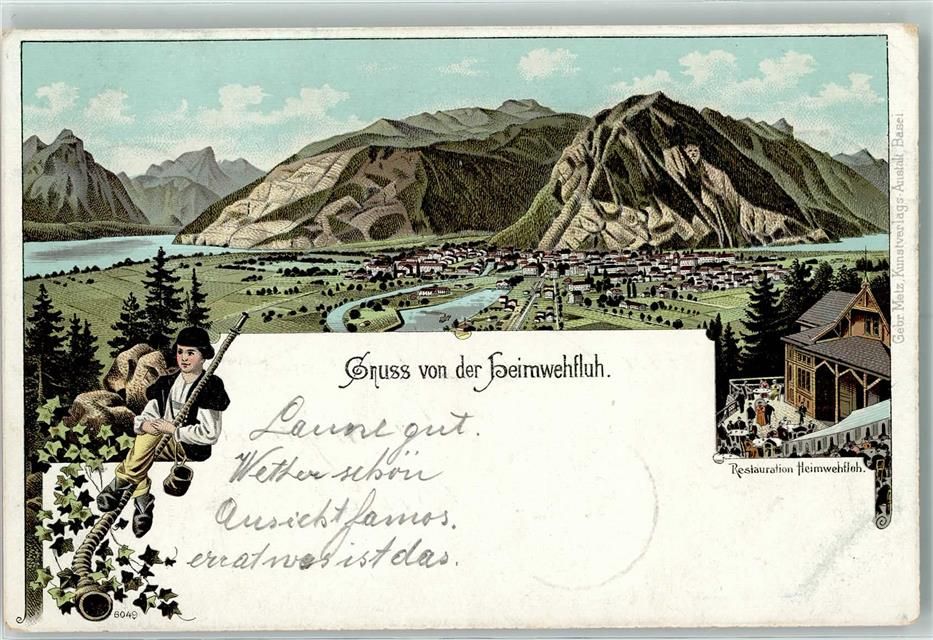 Gruss von der Heimwehfluh.
Laune gut.
Wetter schön
Aussicht famos.
errat was ist das.
Restauration Heimwehfluh.
Gebr. Metz, Kunstverlags-Anstalt, Basel
6049